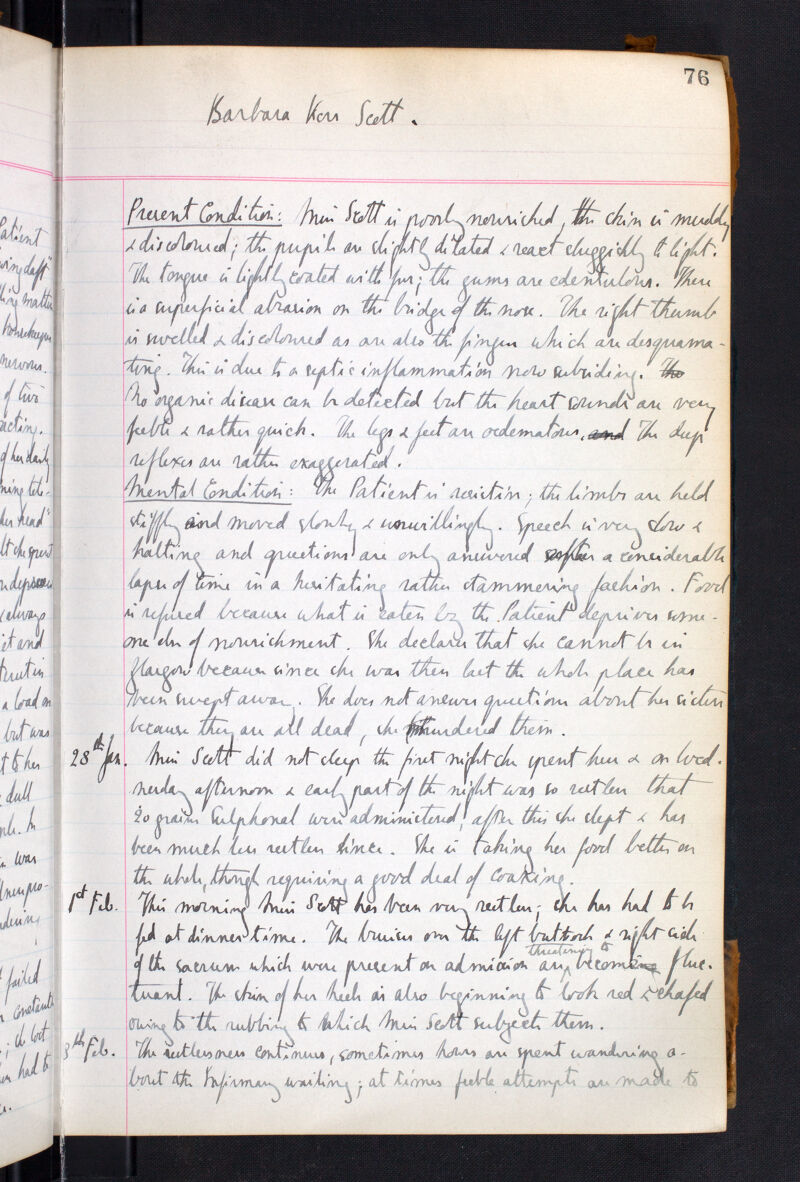 76
Barbara Kerr Scott.
Present Condition: Miss Scott is poorly nourished, the skin is muddy
& discoloured; the pupils are slightly dilated & react sluggishly to light.
The tongue is lightly coated with fur; the gums are edentulous. There
is a superficial abrasion on the bridge of the nose. The right thumb
is swelled & discoloured as are also the fingers which are desquama-
ting. This is due to a septic inflammation now subsiding. The
No organic disease can be detected but the heart sounds are very
feeble & rather quick. The legs & feet are oedematous, and The deep
reflexes are rather exaggerated.
Mental Condition: The Patient is resistive; the limbs are held
stiffly and moved slowly & unwillingly. Speech is very slow &
halting and questions are only answered after a considerable
lapse of time in a hesitating rather stammering fashion. Food
is refused because what is eaten by the Patient deprives some-
one else of nourishment. She declares that she cannot be in
Glasgow because since she was there last the whole place has
been swept away. She does not answer questions about her sisters
because they are all dead, she murdered them.
28th Jan. Miss Scott did not sleep the first night she spent here & on Wed-
nesday afternoon & early part of the night was so restless that
20 grains Sulphonal were administered, after this she slept & has
been much less restless since. She is taking her food better on
the whole, though requiring a good deal of coaxing.
1st Feb. This morning Miss Scott has been very restless; she has had to be
fed at dinner time. The bruises over the left buttock & right side
of the sacrum which were present on admission are threatening to become fluc-
tuant. The skin of her heels is also beginning to look red & chafed
owing to the rubbing to which Miss Scott subjects them.
8th Feb. The restlessness continues, sometimes hours are spent wandering a-
bout the Infirmary waiting; at times feeble attempts are made to
Patient
matter
housekeeper
nervous.
of two
acting.
of her daily
her head"
& always
a load on
but was
to her
dull
was
failed
constant
had to